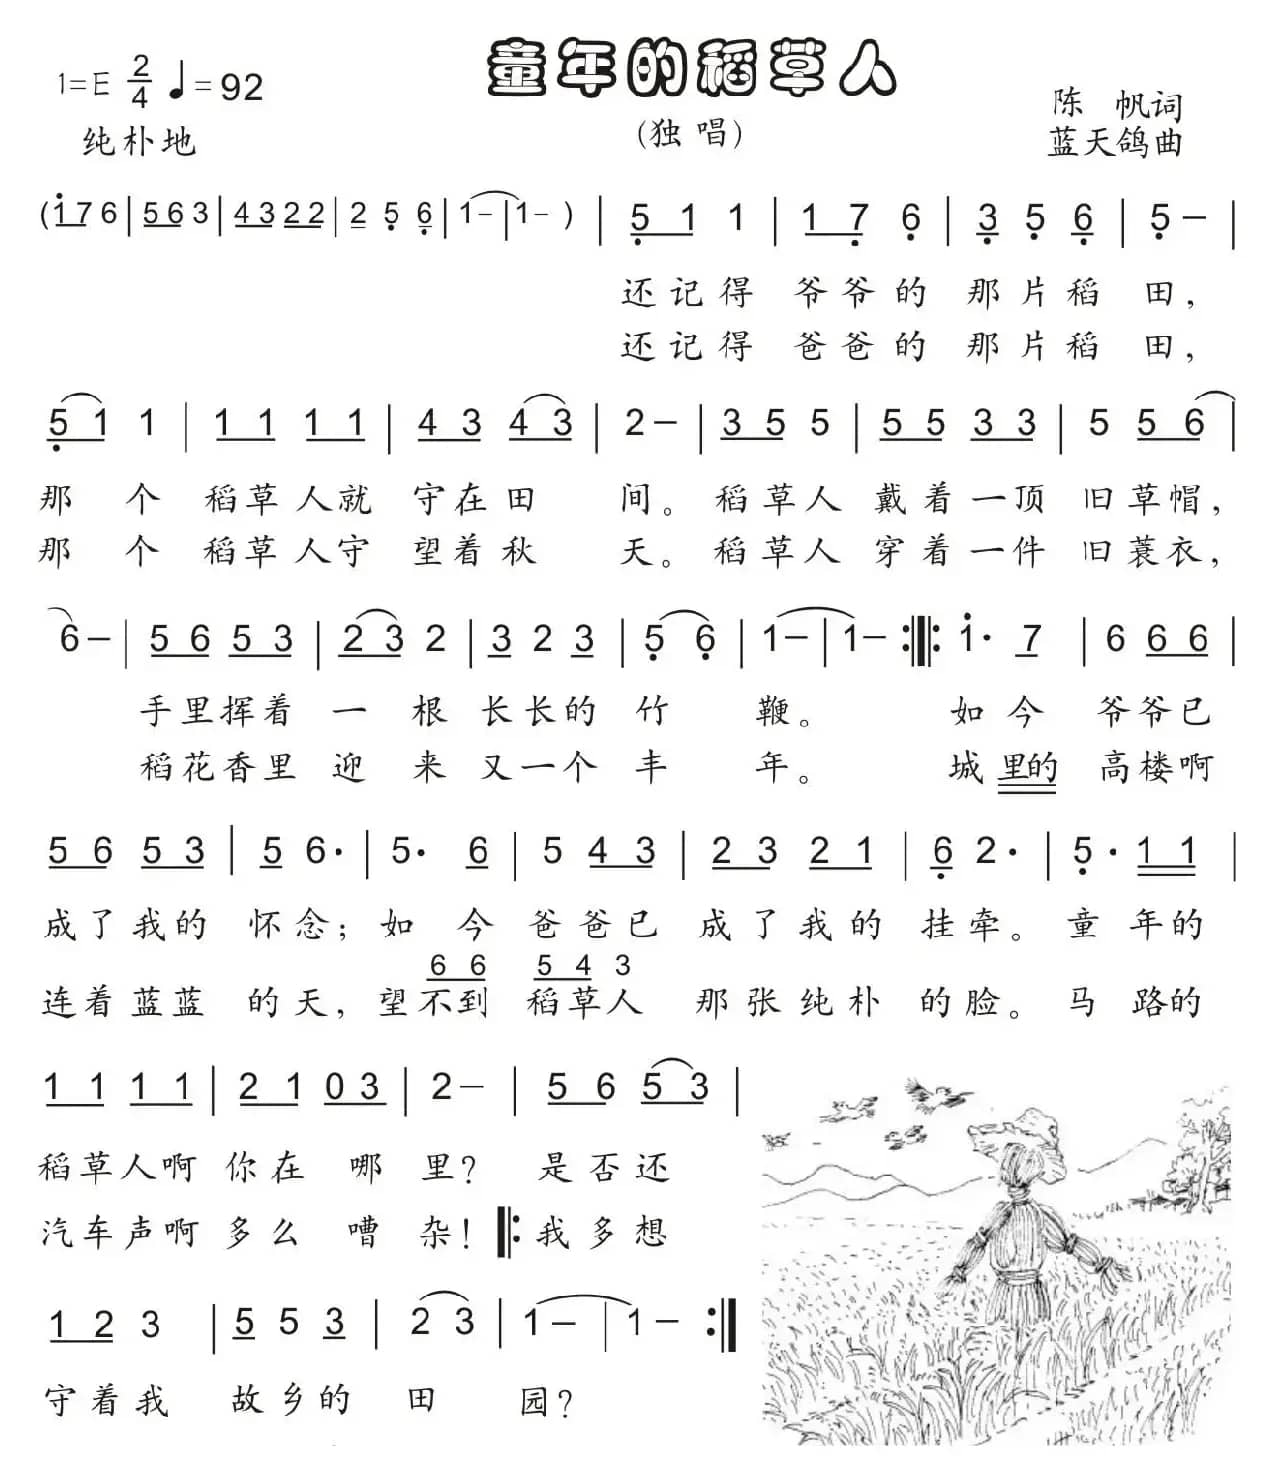 童年的稻草人
1=E 2/4 ♩=92
(独 唱)
陈 帆词
纯朴地
蓝天鸽曲
(1 7 6 | 5 6 3 | 4 3 2 2 | 2 5 6 | 1 - | 1 - ) | 5 1 1 | 1 7 6 | 3 5 6 | 5 - |
还记得 爷爷的 那片稻 田，
还记得 爸爸的 那片稻 田，
5 1 1 | 1 1 1 1 | 4 3 4 3 | 2 - | 3 5 5 | 5 5 3 3 | 5 5 6 |
那 个 稻草人就 守在田 间。稻草人 戴着一顶 旧草帽，
那 个 稻草人守 望着秋 天。稻草人 穿着一件 旧蓑衣，
6 - | 5 6 5 3 | 2 3 2 | 3 2 3 | 5 6 | 1 - | 1 - :‖: 1· 7 | 6 6 6 |
手里挥着 一 根 长长的 竹 鞭。 如今 爷爷已
稻花香里 迎 来 又一个 丰 年。 城里的 高楼啊
5 6 5 3 | 5 6· | 5· 6 | 5 4 3 | 2 3 2 1 | 6 2· | 5· 1 1 |
成了我的 怀念；如 今 爸爸已 成了我的 挂牵。童 年的
6 6 5 4 3
连着蓝蓝 的天，望不到 稻草人 那张纯朴 的脸。马 路的
1 1 1 1 | 2 1 0 3 | 2 - | 5 6 5 3 |
稻草人啊 你在 哪 里？ 是否还
汽车声啊 多么 嘈 杂！‖: 我多想
1 2 3 | 5 5 3 | 2 3 | 1 - | 1 - :‖
守着我 故乡的 田 园？